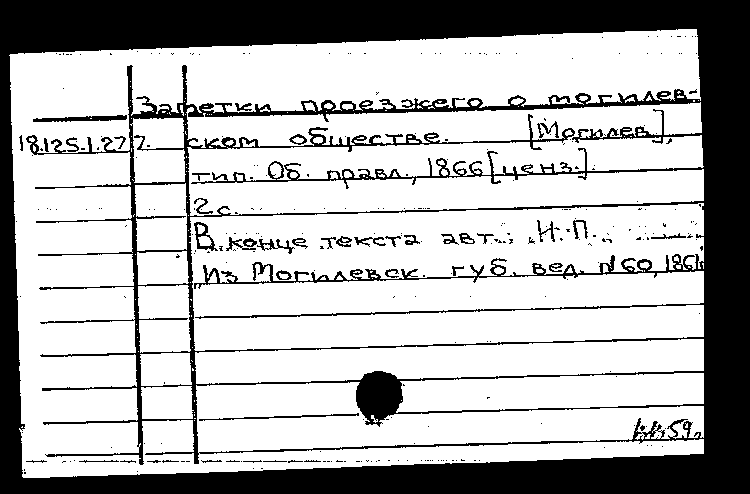 Заметки проезжего о могилев-
18.125.1.277. ском обществе. [Могилев],
тип. Об. правл., 1866 [ценз.].
2 с.
В конце текста авт.: Н.П.
Из Могилевск. губ. вед. №60, 186